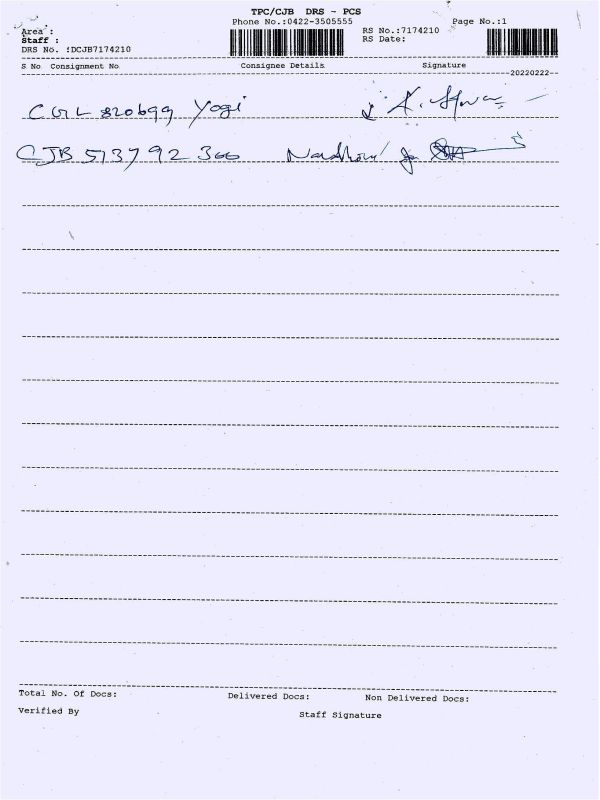 TPC/CJB DRS - PCS
Phone No.:0422-3505555
Page No.:1
Area :
Staff :
DRS No. :DCJB7174210
RS No.:7174210
RS Date:
S No Consignment No Consignee Details Signature
20220222
CGL 820699 Yogi
CJB 513792 366
Total No. Of Docs: Delivered Docs: Non Delivered Docs:
Verified By Staff Signature